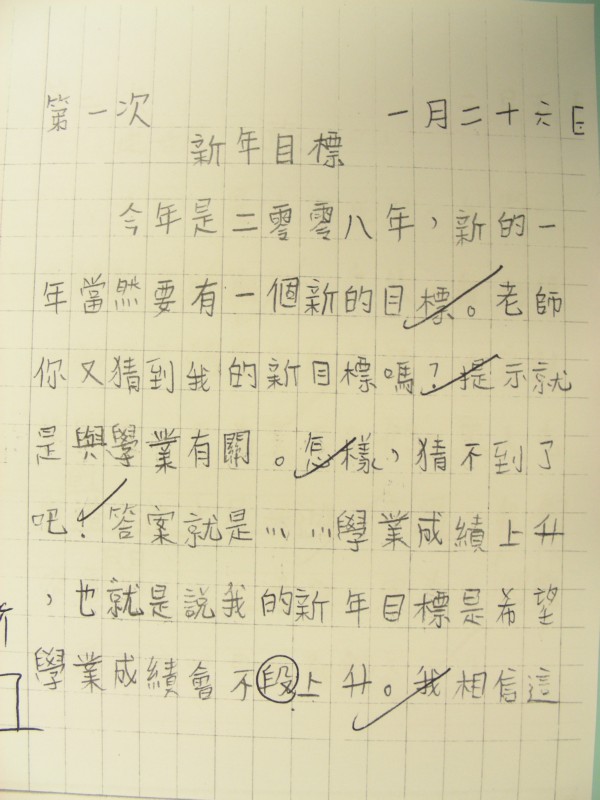 第一次　一月二十六日
新年目標
今年是二零零八年，新的一
年當然要有一個新的目標。老師
你又猜到我的新目標嗎？提示就
是與學業有關。怎樣，猜不到了
吧！答案就是……學業成績上升
，也就是說我的新年目標是希望
學業成績會不段上升。我相信這